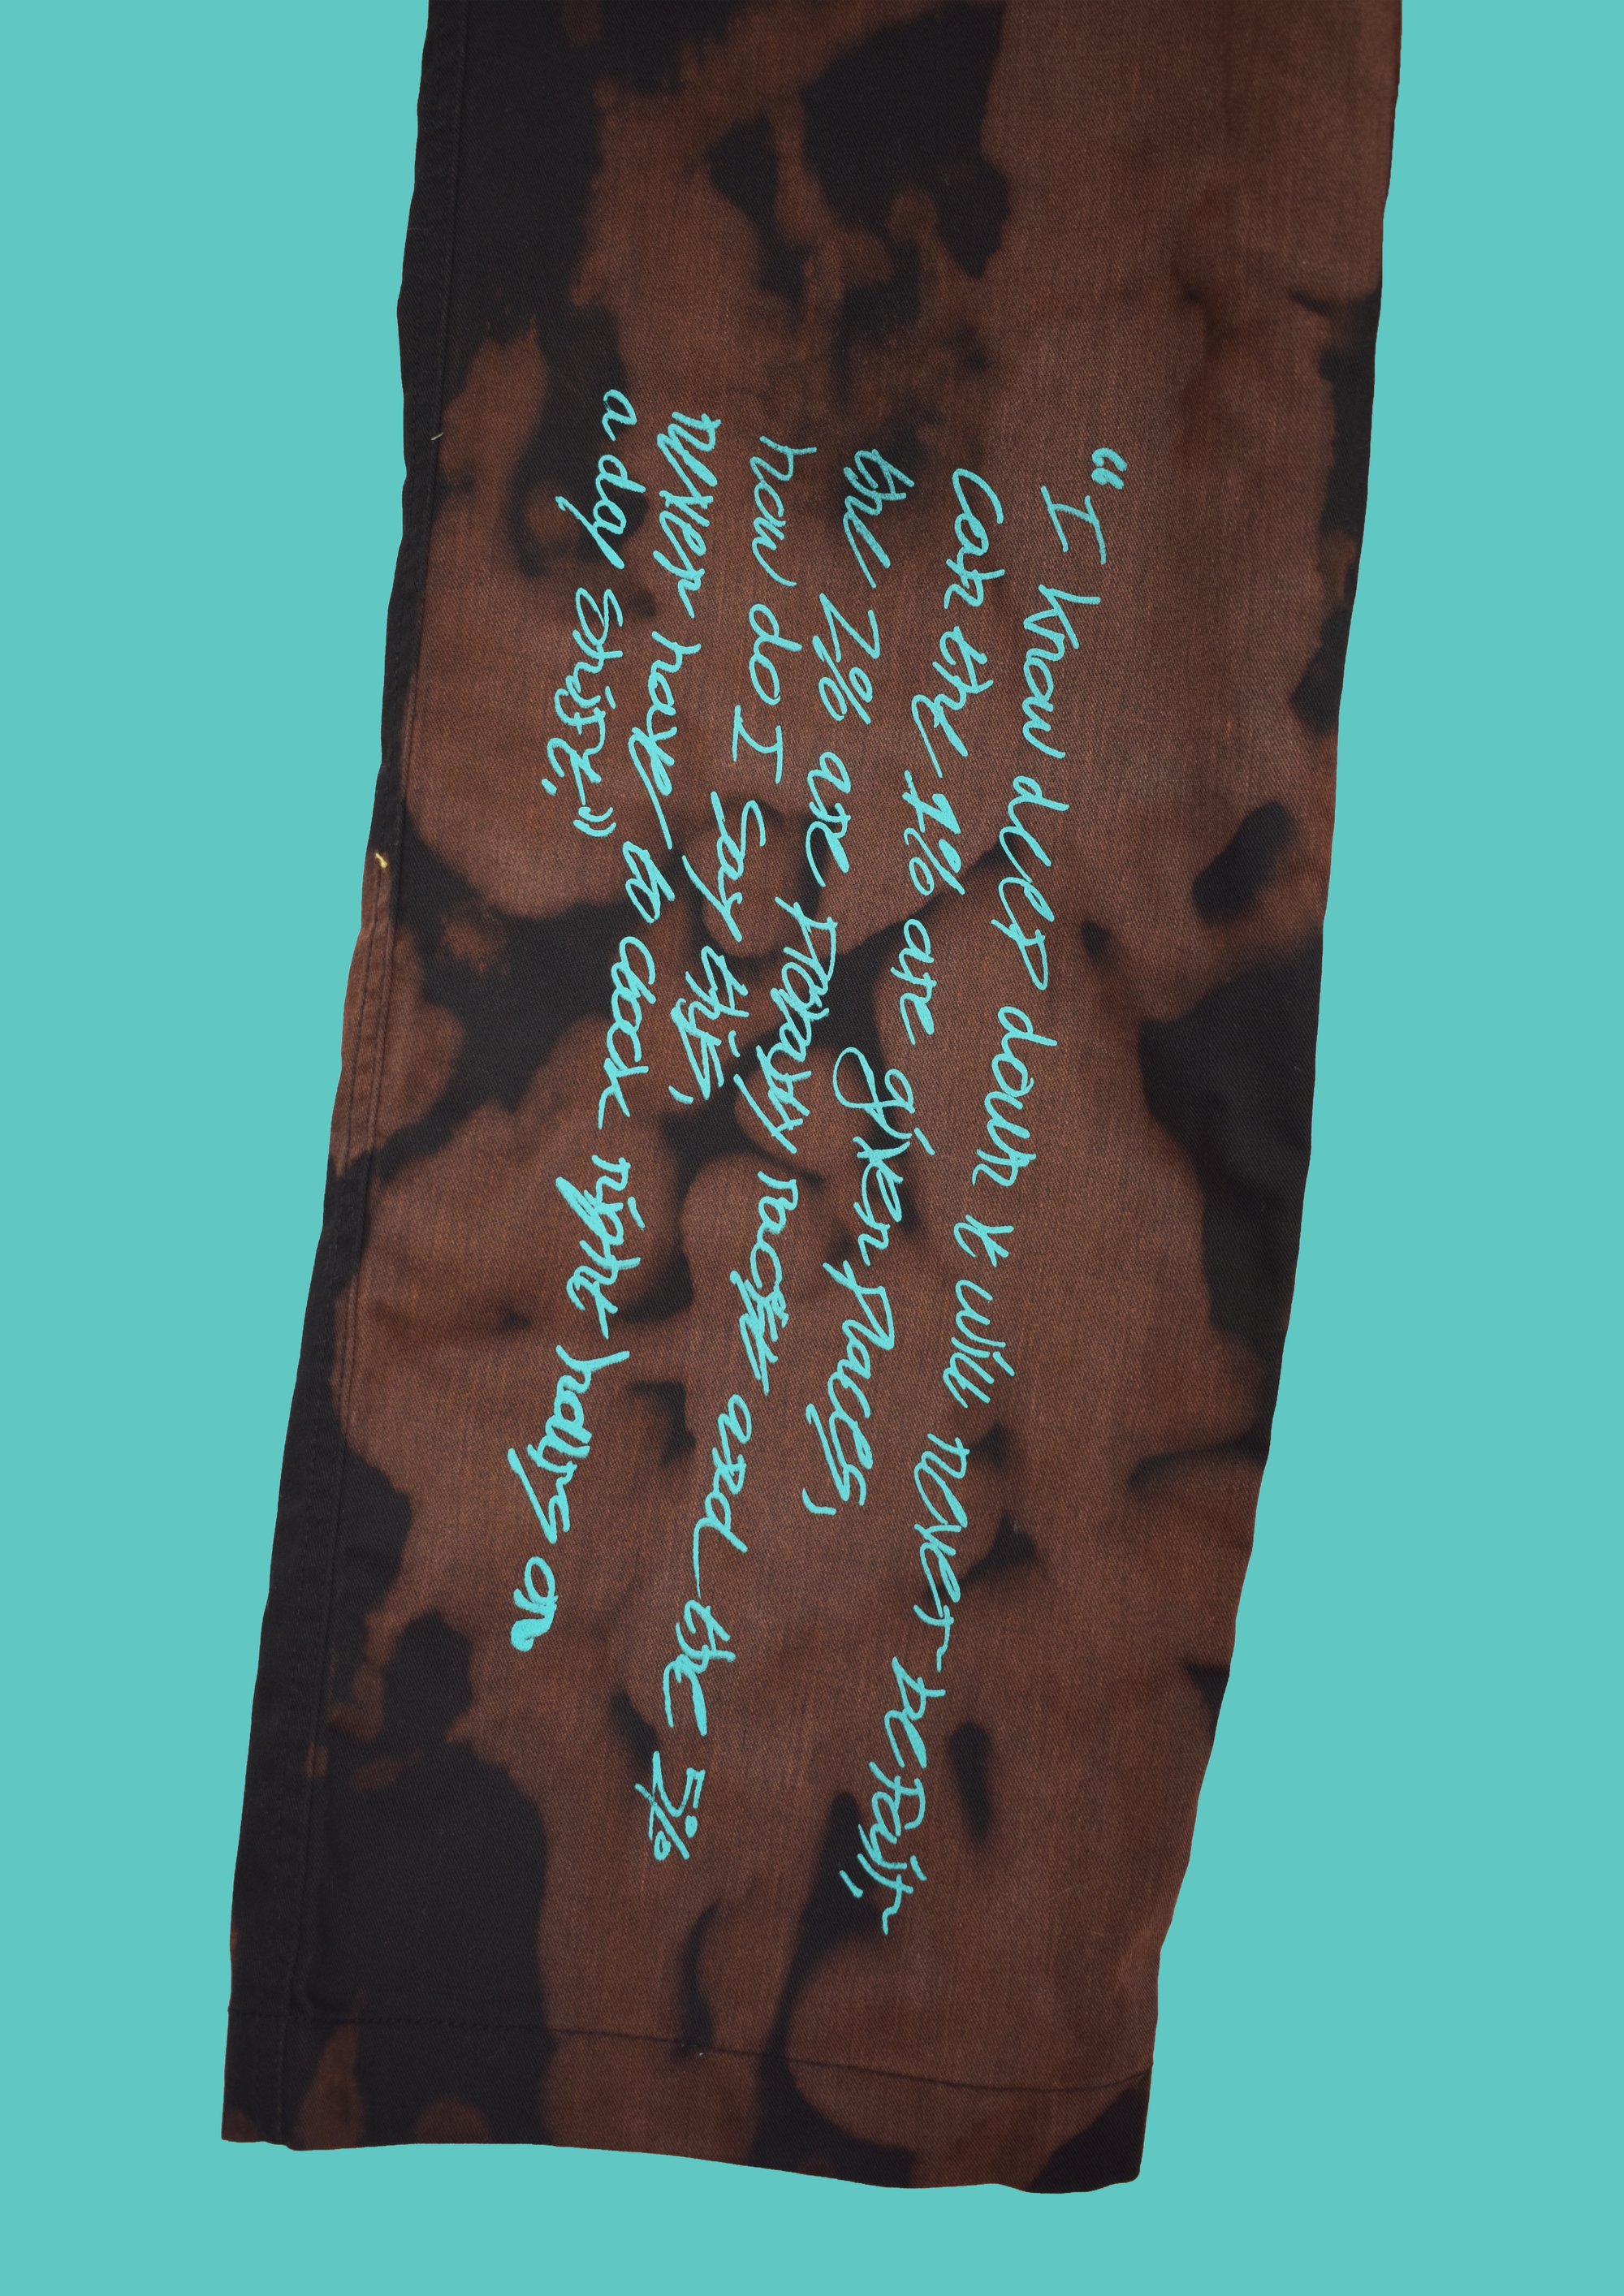 “I know deep down it will never be fair,
the 1% are given places,
the 2% are probably and the 5%
how do I say this,
never have to right on
a day shift.”